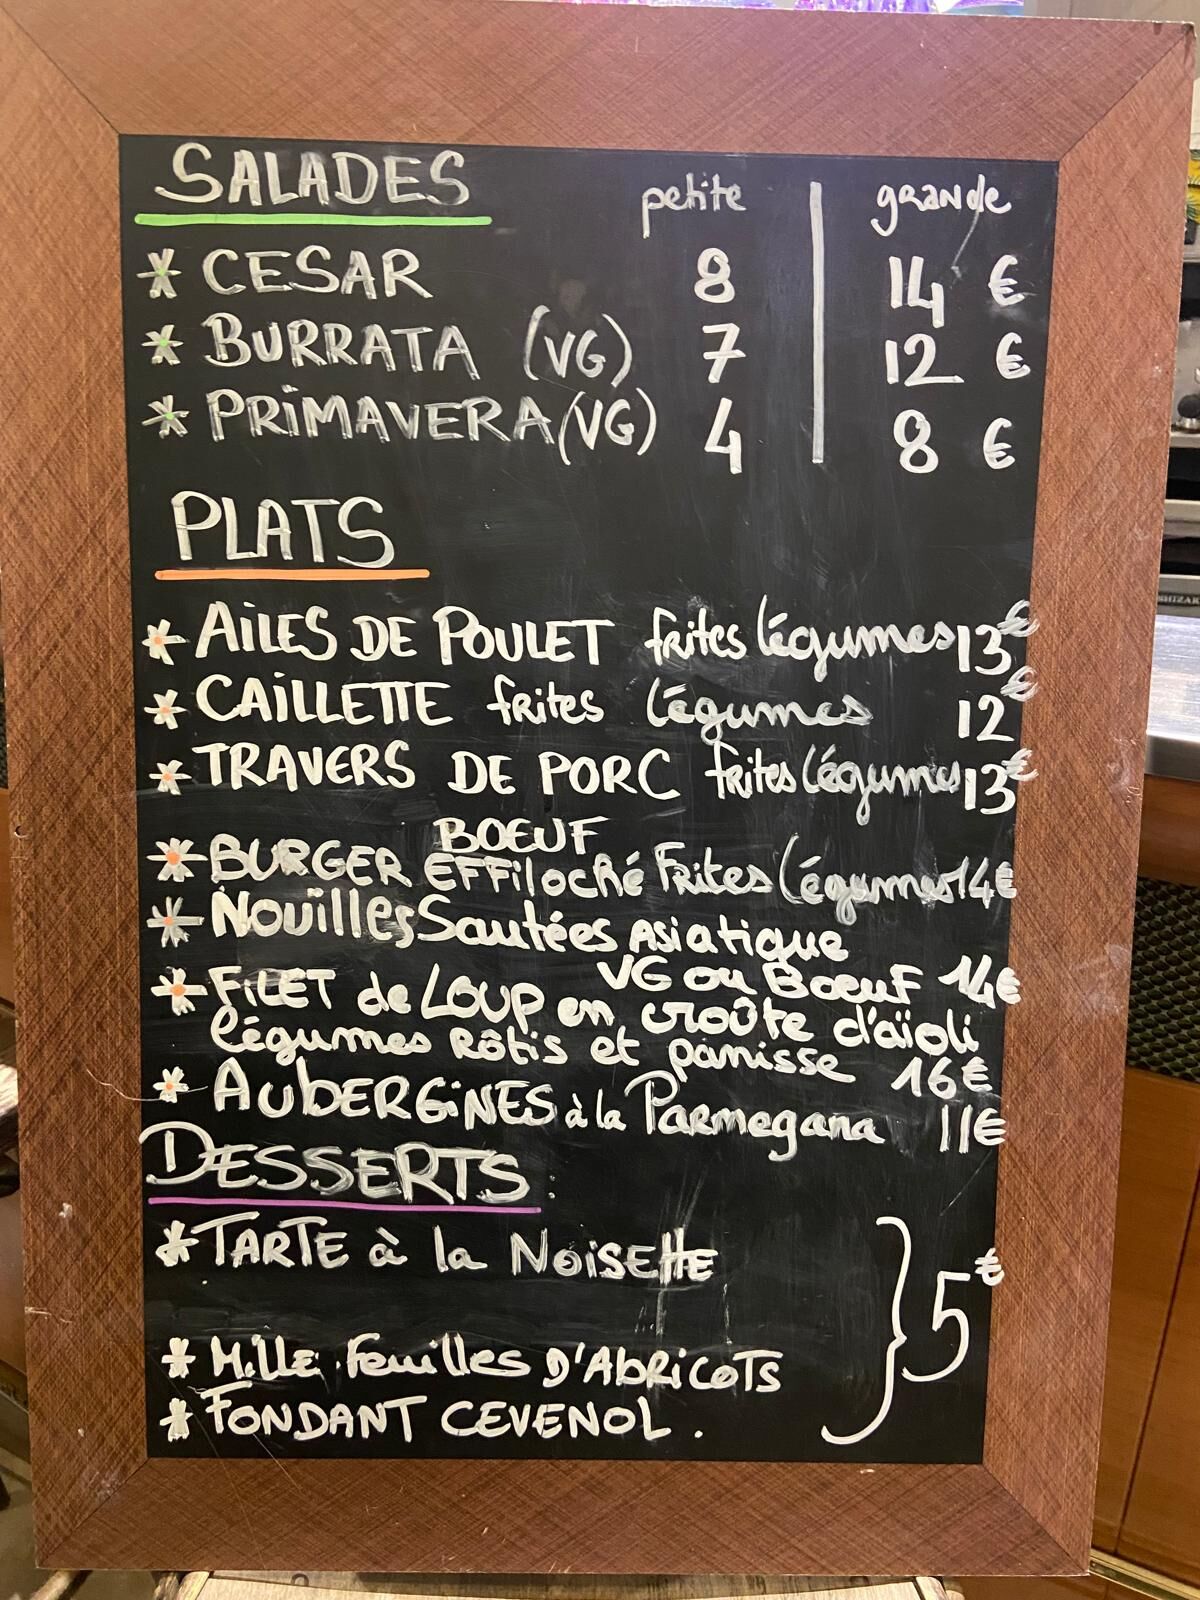 SALADES petite grande
* CESAR 8 14 €
* BURRATA (VG) 7 12 €
* PRIMAVERA (VG) 4 8 €
PLATS
* AILES DE POULET frites légumes 13€
* CAILLETTE frites légumes 12€
* TRAVERS DE PORC frites légumes 13€
BOEUF
* BURGER EFFiloché Frites Légumes 14€
* Nouilles Sautées Asiatique
VG ou Boeuf 14€
* FILET de LOUP en croûte d'aïoli
légumes Rôtis et panisse 16€
* AUBERGINES à la Parmegana 11€
DESSERTS :
* TARTE à la NOISETTE
5€
* Mille Feuilles D'ABRICOTS
* FONDANT CEVENOL.